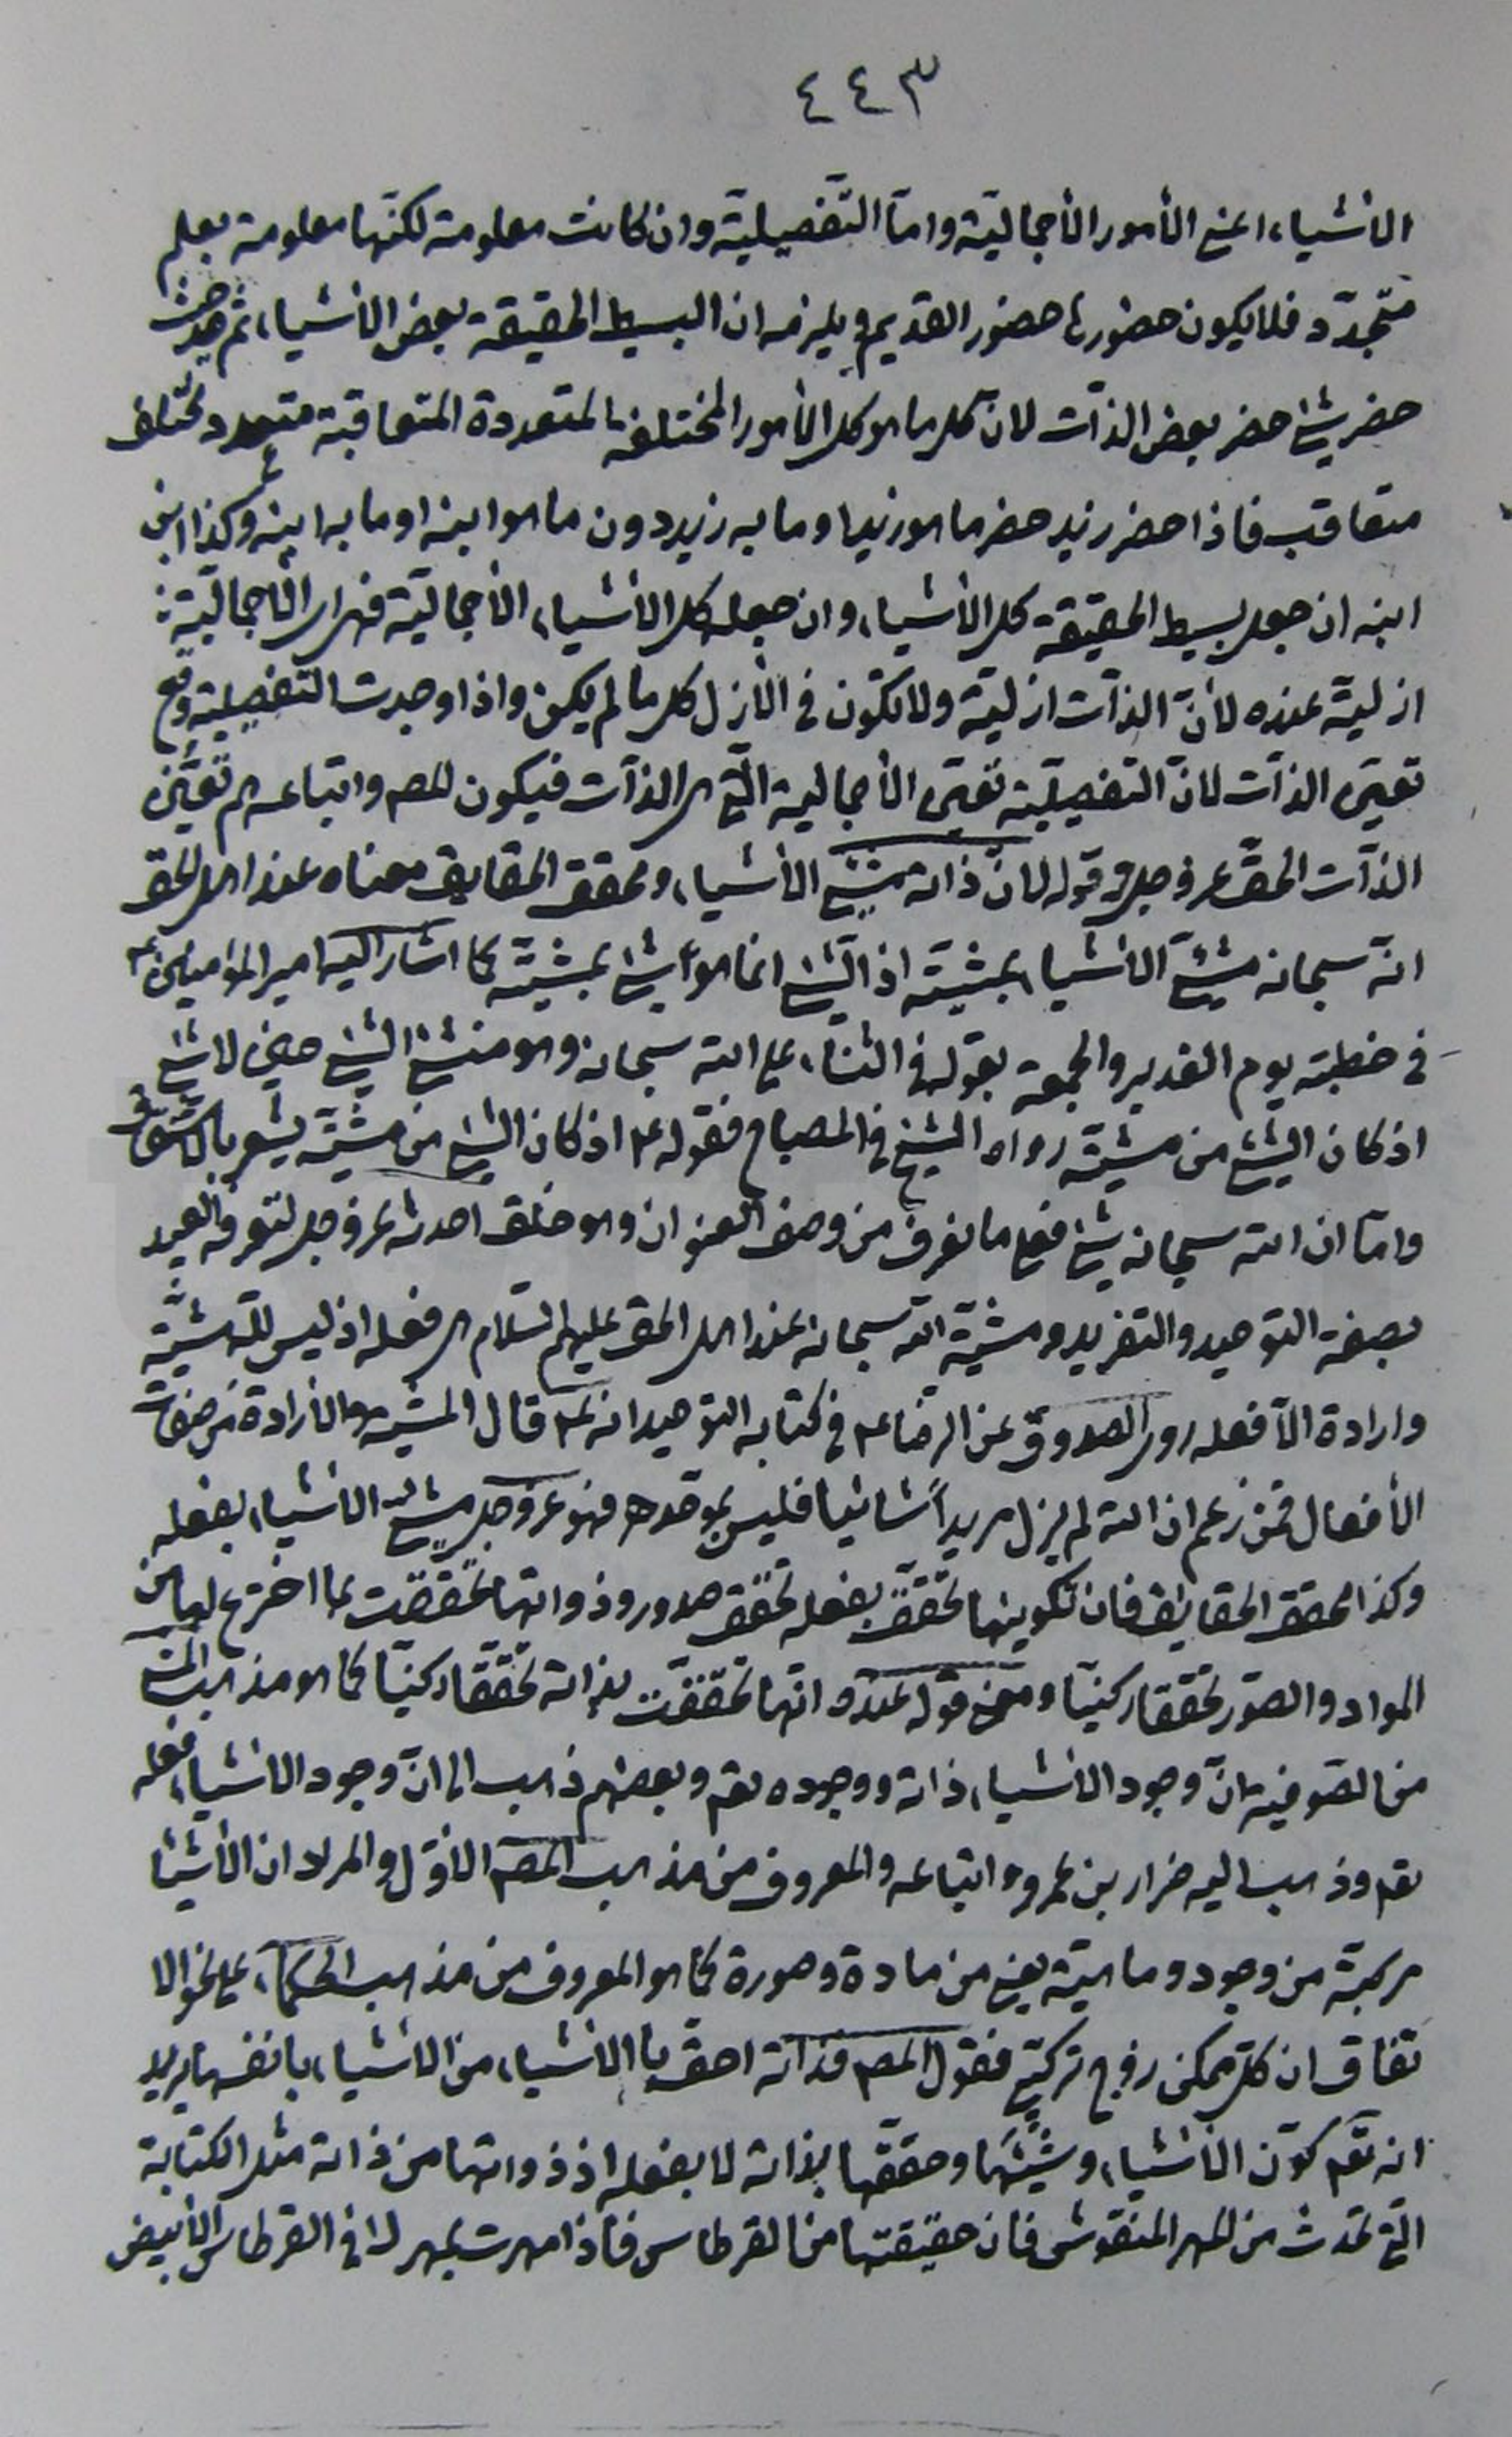 ٤٤٣
الأشياء اعني الأمور الأجماليّة وامّا التّفصيليّة وان كانت معلومة لكنّها معلومة بعلم
متجدّد فلا يكون حضورها حضور القديم ويلزمه ان البسيط الحقيقة بعض الأشياء ثم
حضر شئ حضر بعض الذات لان كل ما هو كل الأمور المختلفة المتعددة المتعاقبة متعدد مختلف
متعاقب فاذا حضر زيد حضر ما هو زيد او ما به زيد دون ما هو ابنه او ما به ابنه وكذا ابن
ابنه ان جعل بسيط الحقيقة كل الأشياء وان جعله كل الأشياء الأجماليّة فهي اي الأجماليّة
ازليّة عنده لأنّ الذات ازليّة ولا تكون في الأزل كل ما لم يكن واذا وجدت التفصيلية وقع
تعيّن الذات لانّ التفصيليّة تعيّن الأجمالية الّتي هي الذات فيكون للمص واتباعه هم تعيّن
الذات الحقّ عز وجل وقوله لانّ ذاته مشيّئ الأشياء ومحقق الحقايق معناه عند اهل الحق
انّه سبحانه مشيّئ الأشياء بمشيّته اذ الشئ انما هو شئ بمشيّته كما اشار اليه امير المؤمنين ع
في خطبته يوم الغدير والجمعة بقوله في الثناء على الله سبحانه وهو منشئ الشئ حين لا شئ
اذ كان الشئ من مشيّته رواه الشيخ في المصباح فقوله ع اذ كان الشئ من مشيّته يشعر بالاشتقاق
وامّا ان الله سبحانه شئ فعلى ما نعرف من وصف العنوان وهو خلق احدثه عز وجل لتعرفه العبيد
بصفة التوحيد والتفريد ومشيّة الله سبحانه عند اهل الحق عليهم السلام هي فعله اذ ليس للّه مشيّة
وارادة الّا فعله روى الصدوق عن الرضا ع في كتابه التوحيد انه ع قال المشية والأرادة من صفات
الأفعال فمن زعم ان الله لم يزل مريداً شائيا فليس بموحد فهو عز وجل مشيّئ الأشياء بفعله
وكذا محقق الحقايق فان تكوينها تحقّق بفعله تحقق صدور وذواتها تحققت بما اخترع لها من
المواد والصّور تحققا ركنيّا ومعنى قوله عنده انّها تحققت بذاته تحققا ركنيّا كما هو مذهب
من الصّوفية انّ وجود الأشياء ذاته ووجوده تعم وبعضهم ذهب الى انّ وجود الأشياء فعله
تعم وذهب اليه ضرار بن عمرو واتباعه والمعروف من مذهب المص الأوّل والمراد ان الأشياء
مركبة من وجود وماهيّة يعني من مادة وصورة كما هو المعروف من مذهب الحكماء على نحو الا
تفاق ان كلّ ممكن زوج تركيبي فقول المص فذاته احق بالأشياء من الأشياء بانفسها يريد
انه تعم كوّن الأشياء وشيّئها وحققها بذاته لا بفعله اذ ذواتها من ذاته مثل الكتابة
التي تحدث من المهر المنقوش فان حقيقتها من القرطاس فاذا مهرت بمهر لها في القرطاس الأبيض